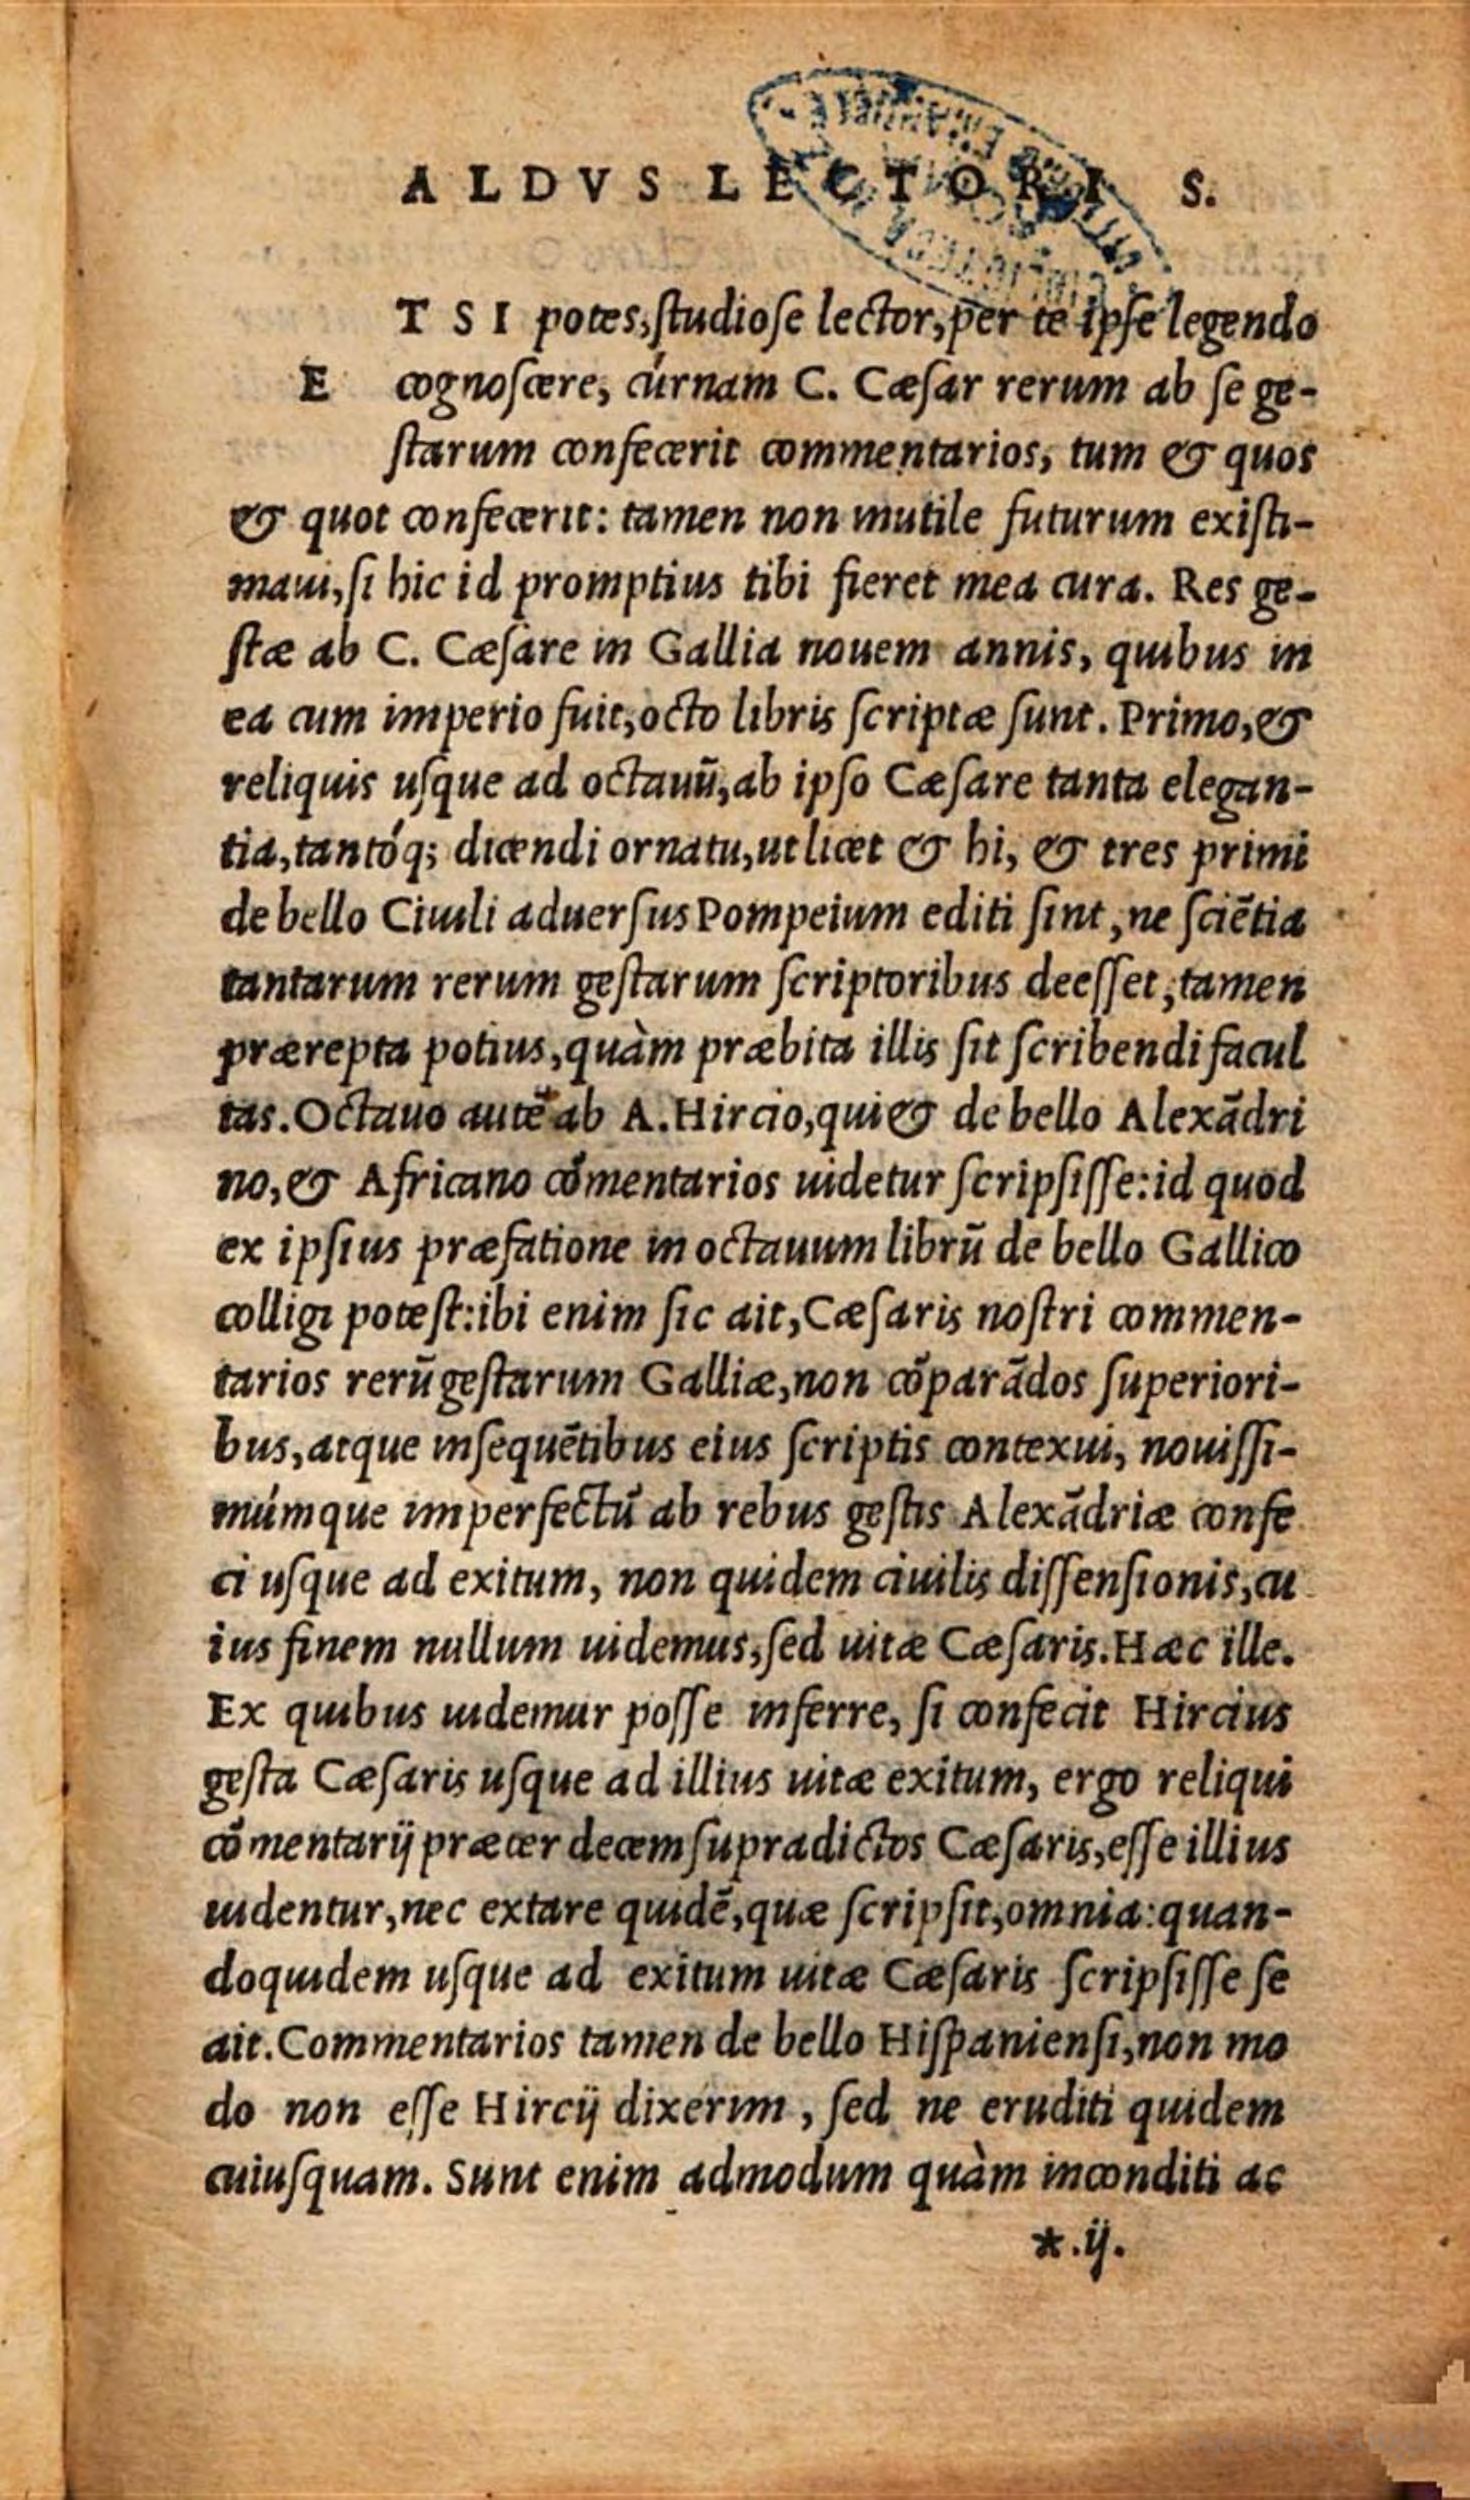 ALDVS LECTORI S.
E TSI potes, ſtudioſe lector, per te ipſe legendo
cognoſcere, cúrnam C. Cæſar rerum ab ſe ge-
ſtarum confecerit commentarios, tum & quos
& quot confecerit: tamen non inutile futurum exiſti-
maui, ſi hic id promptius tibi fieret mea cura. Res ge-
ſtæ ab C. Cæſare in Gallia nouem annis, quibus in
ea cum imperio fuit, octo libris ſcriptæ ſunt. Primo, &
reliquis uſque ad octauū, ab ipſo Cæſare tanta elegan-
tia, tantóq; dicendi ornatu, ut licet & hi, & tres primi
de bello Ciuili aduerſus Pompeium editi ſint, ne ſciētia
tantarum rerum geſtarum ſcriptoribus deeſſet, tamen
prærepta potius, quàm præbita illis ſit ſcribendi facul
tas. Octauo autē ab A. Hircio, qui & de bello Alexādri
no, & Africano cōmentarios uidetur ſcripſiſſe: id quod
ex ipſius præfatione in octauum librū de bello Gallico
colligi poteſt: ibi enim ſic ait, Cæſaris noſtri commen-
tarios rerū geſtarum Galliæ, non cōparādos ſuperiori-
bus, atque inſequētibus eius ſcriptis contexui, nouiſſi-
múmque imperfectū ab rebus geſtis Alexādriæ confe
ci uſque ad exitum, non quidem ciuilis diſſenſionis, cu
ius finem nullum uidemus, ſed uitæ Cæſaris. Hæc ille.
Ex quibus uidemur poſſe inferre, ſi confecit Hircius
geſta Cæſaris uſque ad illius uitæ exitum, ergo reliqui
cōmentarij præter decem ſupradictos Cæſaris, eſſe illius
uidentur, nec extare quidē, quæ ſcripſit, omnia: quan-
doquidem uſque ad exitum uitæ Cæſaris ſcripſiſſe ſe
ait. Commentarios tamen de bello Hiſpanienſi, non mo
do non eſſe Hircij dixerim, ſed ne eruditi quidem
cuiuſquam. Sunt enim admodum quàm inconditi ac
*.ij.